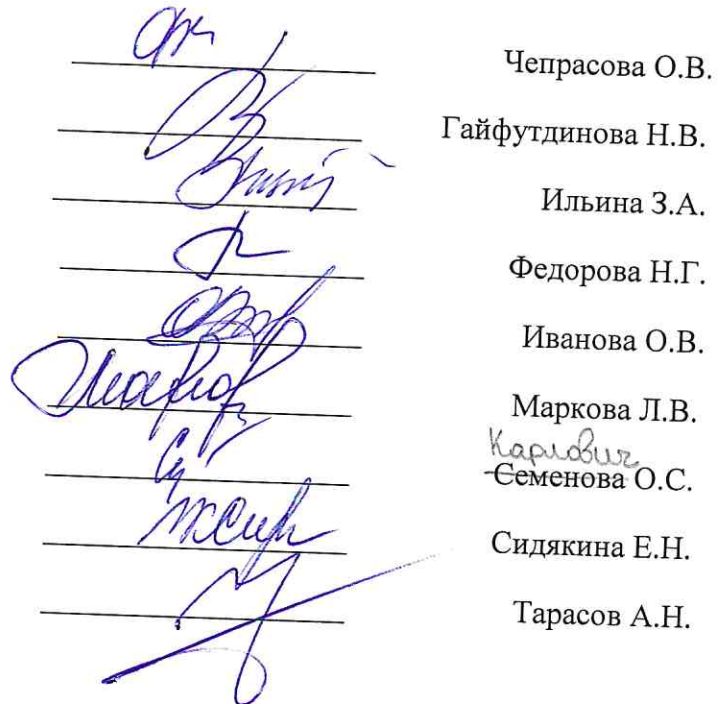 Чепрасова О.В.
Гайфутдинова Н.В.
Ильина З.А.
Федорова Н.Г.
Иванова О.В.
Маркова Л.В.
Карлович
Семенова О.С.
Сидякина Е.Н.
Тарасов А.Н.